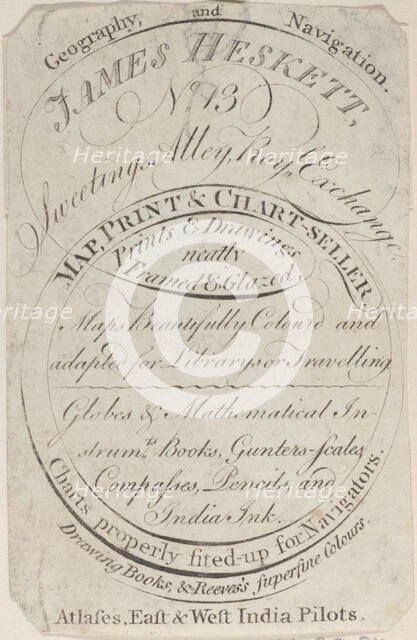 Geography, and Navigation.
JAMES HESKETT,
No. 13
Sweetings Alley, Royl. Exchange.
MAP, PRINT & CHART-SELLER
Prints & Drawings
neatly
Framed & Glazed,
Maps Beautifully Colour'd and
adapted for Librarys or Travelling
Globes & Mathematical In-
strumts. Books, Gunters-ſcales,
Compaſses, Pencils, and
India Ink.
Charts properly fited-up for Navigators.
Drawing Books, & Reeves's ſuperfine Colours.
Atlaſes, Eaſt & Weſt India Pilots.
Heritage Images